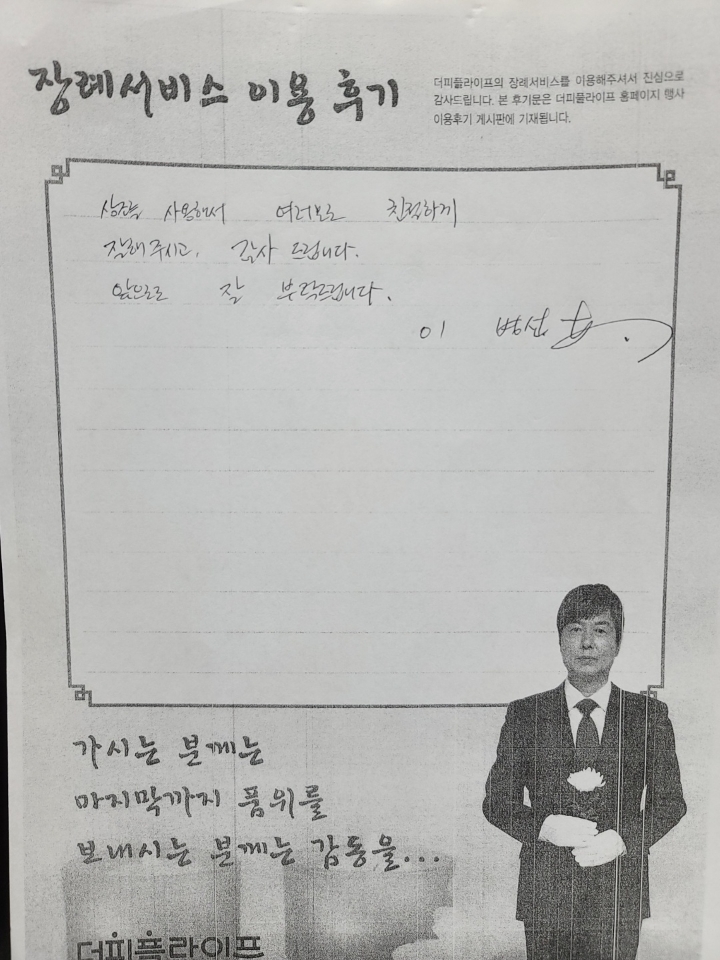 장례서비스 이용 후기
더피플라이프의 장례서비스를 이용해주셔서 진심으로
감사드립니다. 본 후기문은 더피플라이프 홈페이지 행사
이용후기 게시판에 기재됩니다.
사용해서 여러모로 친절하게
잘해주시고, 감사 드립니다.
앞으로 잘 부탁드립니다.
이
가시는 분께는
마지막까지 품위를
보내시는 분께는 감동을...
더피플라이프